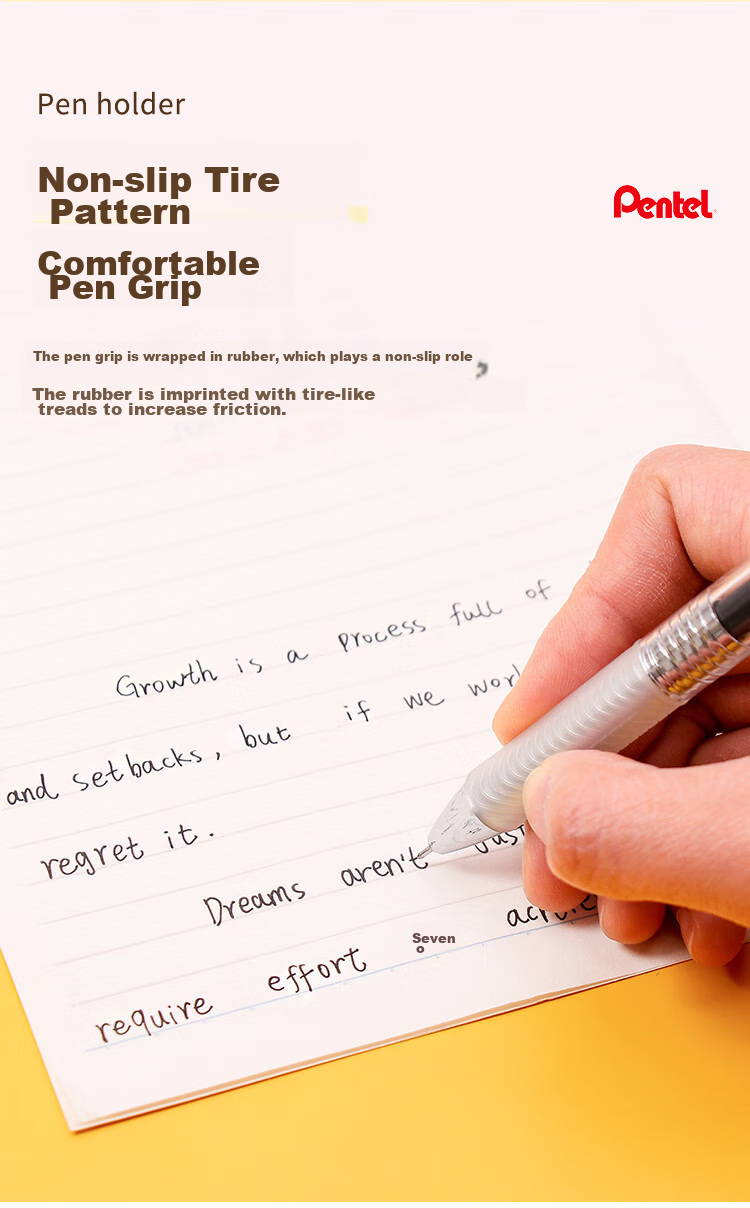 Pen holder
Non-slip Tire
Pattern
Pentel
Comfortable
Pen Grip
The pen grip is wrapped in rubber, which plays a non-slip role
The rubber is imprinted with tire-like
treads to increase friction.
Growth is a process full of
and setbacks, but if we work
regret it.
Dreams aren't Just
require effort Seven
o